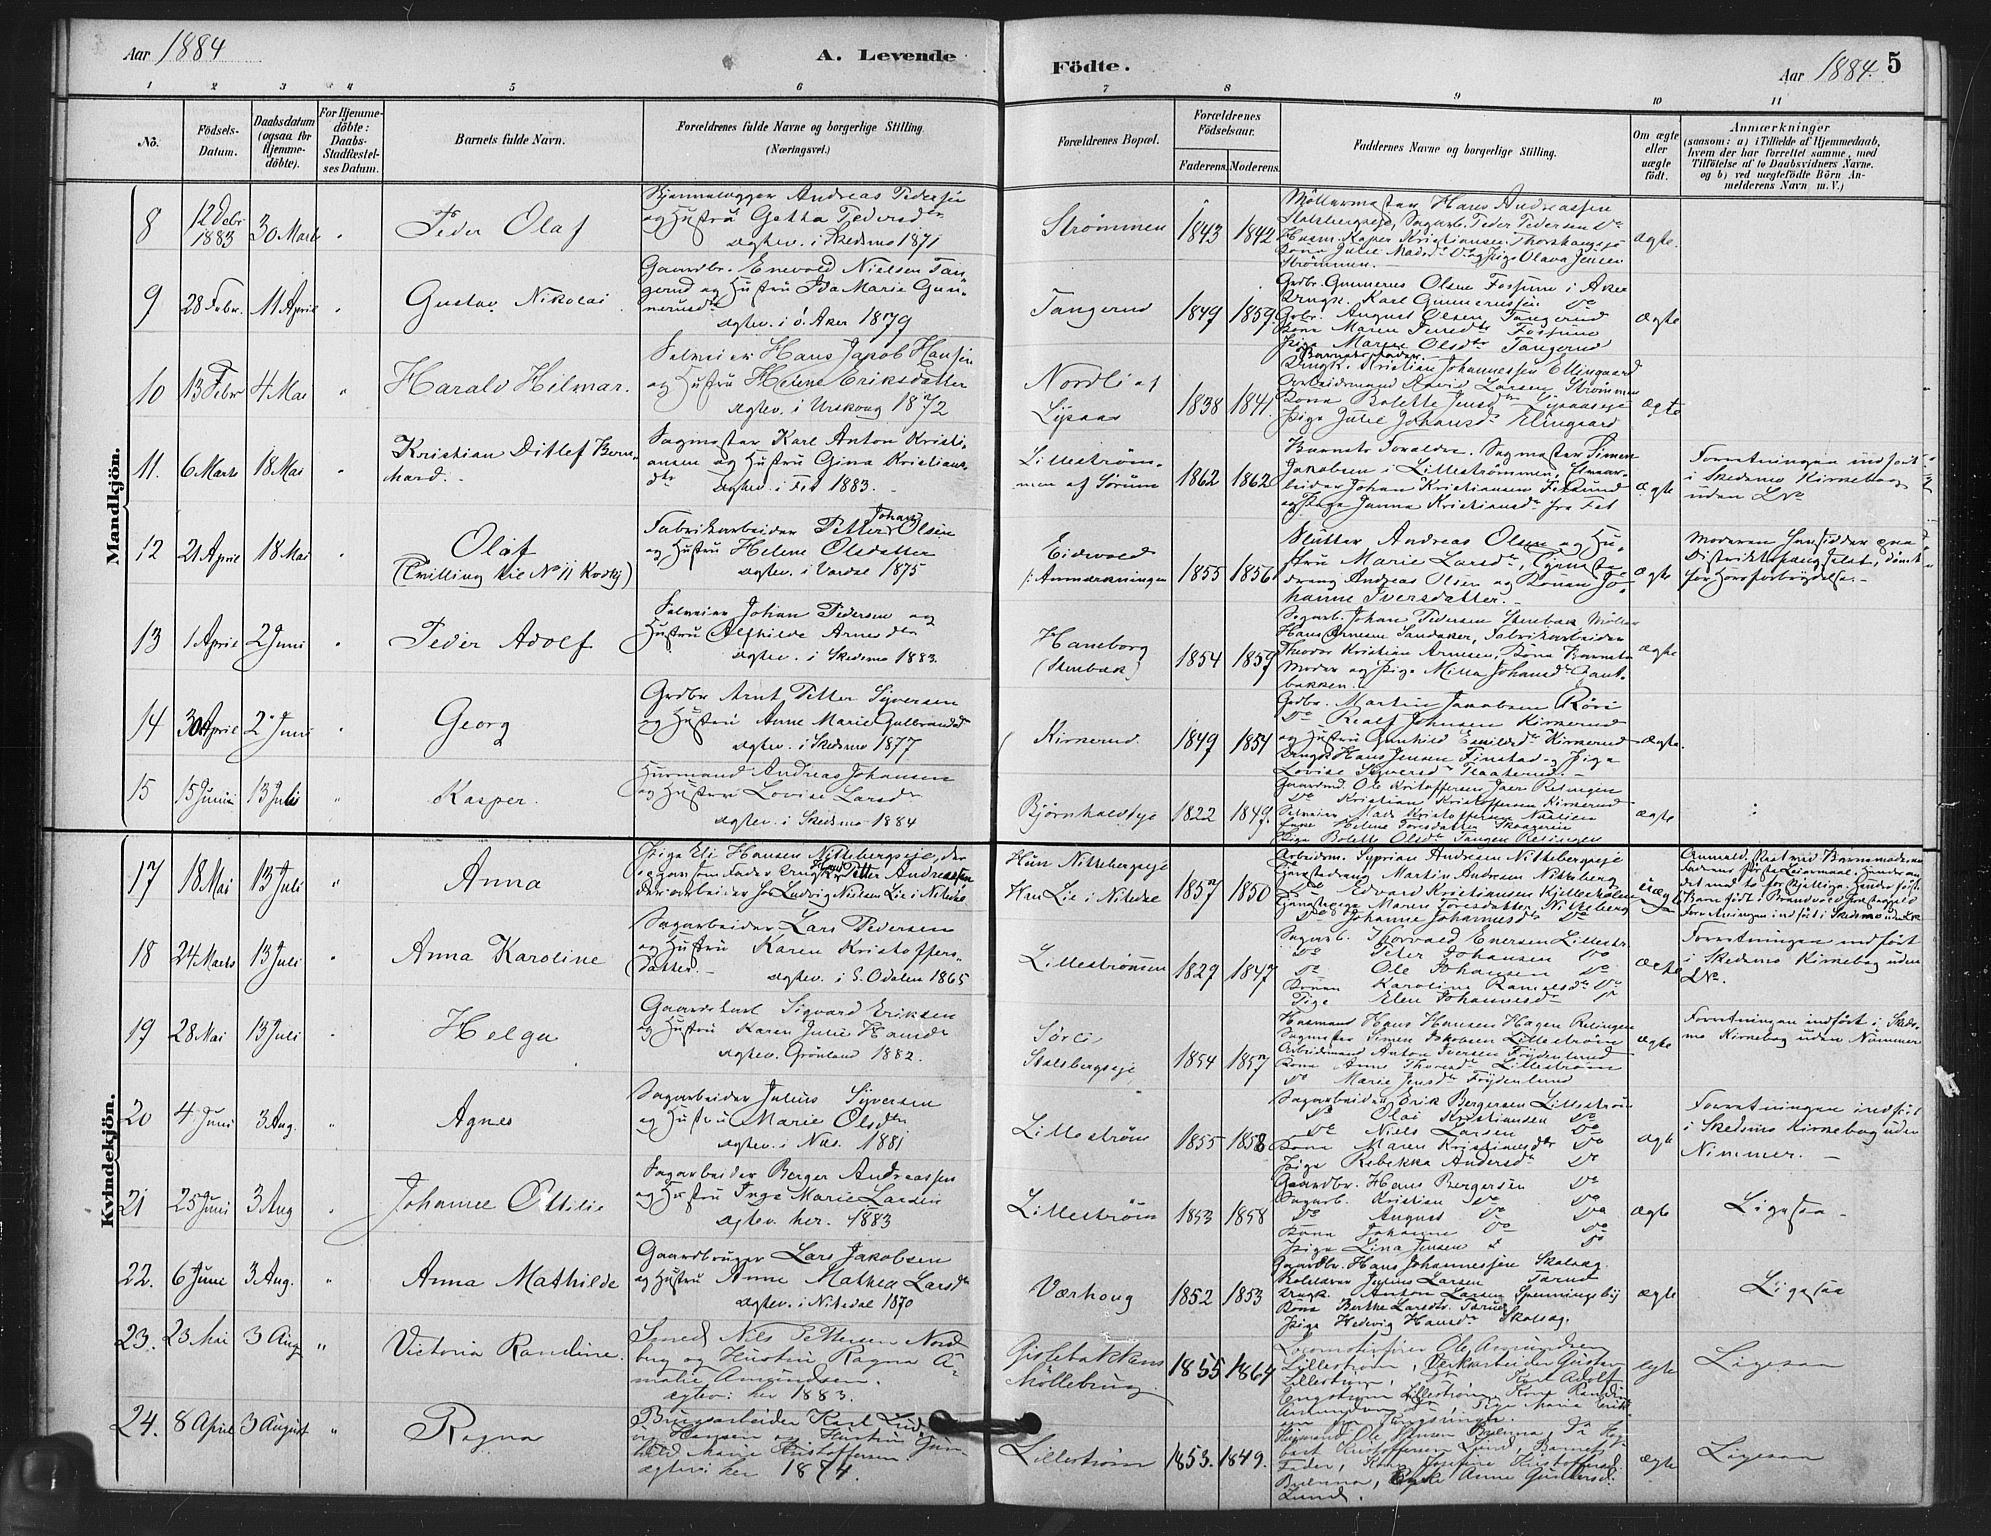 Aar 1884
A. Levende
Födte.
Aar 1884.
5
1 2 3 4 5 6 7 8 9 10 11
No.
Födsels-Datum.
Daabsdatum (ogsaa for Hjemme-döbte).
For Hjemme-döbte: Daabs-Stadfæstel-ses Datum.
Barnets fulde Navn.
Forældrenes fulde Navne og borgerlige Stilling. (Næringsvei.)
Forældrenes Bopæl.
Forældrenes Födselsaar.
Faderens. Moderens.
Faddernes Navne og borgerlige Stilling.
Om ægte eller uægte födt.
Anmærkninger (saasom: a) i Tilfælde af Hjemmedaab, hvem der har forrettet samme, med Tilföielse af to Daabsvidners Navne. og b) ved uægtefödte Börn An-melderens Navn m. V.)
Mandkjön.
8
12 Debr 1883
30 Marts
Peder Olaf
Andreas Pedersen
og Hustru Getha Pedersdr
ægtev. i Skedsmo 1871
Strømmen
1843 1842
Møllermester Hans Andreassen
Stalsbergeje, Sagarb. Peder Pedersen Do
Strømmen.
ægte.
9
28 Febr.
11 April
Gustav Nikolai
Gaardbr. Enevold Nielsen Tan-
gerud og Hustru Ida Marie Gun-
nerusdr
ægtev. i Ö. Aker 1879
Tangerud
1849 1859
Grdbr. Gunnerus Olsen Fossum i Aker
Drngk. Karl Gunnerussen Do
Grbr. August Olsen Tangerud
Kona Maren Jensdr Fossum
Pige Maren Olsdtr Tangerud
ægte
10
13 Febr
4 Mai
Harald Hilmar.
Selveier Hans Jacob Hansen
og Hustru Helene Eriksdatter
ægtev. i Urskoug 1872
Nordli af
1838 1841.
Barnets Fader.
Drngk. Kristian Johannessen Ellingaard
Arbeidsmand David Larsen Strømmen
Pige Julie Johansdr Elingaard
ægte
11.
6 Marts
18 Mai
Kristian Ditlef Bern-
hard.
Sagmester Karl Anton Kristi-
ansen og Hustru Gina Kristians-
dtr
ægtev. i Fet 1883.
Lillestrøm-
men af Sørum
1862 1862
Barnets Forældre. Sagmester Simen
Jakobsen i Lillestrømmen,
beider Johan Kristiansen Fetsund
og Pige Janna Kristiansdr fra Fet
ægte
Forretningen indført
i Skedsmo Kirkebog
uden No
12
21 April
18 Mai
Olaf
(Tvilling til No 11 Kvdkj)
Fabrikarbeider Petter Johan Olsen
og Hustru Helene Olsdatter
ægtev. i Vardal 1875
Eidsvold
/: Anmærkningen
1855 1856
Slutter Andreas Olsen og Hu-
stru Marie Larsdr, Tjeneste-
dreng Andreas Olsen og Konen Jo-
hanne Iversdatter.
ægte
Moderen Indsidder paa
Distriktsfængslet, dømt
for Horsforbrydelse.
13
1 April
2 Juni
Peder Adolf
Selveier Johan Pedersen og
Hustru Alfhilde Arnedtr
ægtev. i Skedsmo 1883.
Haneborg
(Stenbæk)
1854 1859
Sagarb. Johan Pedersen Stenbæk Møller
Hans Arnesen Sandaker, Fabrikarbeider
Theodor Kristian Arnesen, Kona Barnets
Moder og Pige Milla Johansdr
bakken.
ægte
14
30 April
2 Juni
Georg
Grdbr Arnt Petter Syversen
og Hustru Anne Marie Gulbrandsd
ægtev. i Skedsmo 1877
Kirkerud.
1849 1854
Grdbr. Martin Jacobsen
Do Realf Johnsen Kirkerud
og Hustru Gunhild Kirkerud
Drngk Hans Jensen Finstad og Pige
Lovise Syversdr
ægte.
15
15 Juni
13 Juli
Kasper.
Husmand Andreas Johansen
og Hustru Lovise Larsdr
ægtev. i Skedsmo 1884
Bjørnholdteje
1822 1849.
Gaardmd. Ole Kristoffersen Relingen
Do Kristian Kristoffersen Kirkerud
Selveier Mads Kristoffersen
Enke Helene Toresdatter
Pige Bolette Olsdr Tangen Relingen
ægte
Kvindekjön.
17
18 Mai
13 Juli
Anna
Pige Eli Hansen Nittebergseje, der
opgav som Fader Petter Andreassen
der arbeider hos Ludvig Nielsen Lie i Nitedal
Hun Nittebergseje
Han Lie i Nitedal
1857 1850
Arbeidsm. Syprian Andresen Nittebergseje
Tjenestedreng Martin Andresen Nitteberg
Do Edvard Kristiansen Kjellerholen
Tjenestepige Maren Toresdatter Nitteberg
Do Johanne Johannesdr Do
uægte
Anmeldt Skriftlig Barnemoderen
Forretningen indført i Skedsmo uden No
18
24 Marts
13 Juli
Anna Karoline
Sagarbeider Lars Pedersen
og Hustru Karen Kristoffers-
datter.
ægtev. i S. Odalen 1865
Lillestrømmen
1829 1847
Sagarb. Thorvald Evensen Lillestr.
Do Peter Johansen Do
Do Ole Johansen Do
Konen Karoline Do
Pige Elen Johannesdr Do
ægte
Forretningen indført
i Skedsmo Kirkebog uden
No.
19
28 Mai
13 Juli
Helga
Gaardskarl Sigvard Eriksen
og Hustru Karen Julie Hansdr
ægtev. Grönland 1882.
Stalsbergseje
1854 1857
Husmand Hans Hansen Hagen Relingen
Sagmester Simen Jakobsen Lillestrøm
Arbeidsmand Anton Iversen Frydenlund
Kona Anne Thoresdr Lillestrøm
Do Marie Jensdr Frydenlund
ægte
Forretningen indført i Skeds-
mo Kirkebog uden Nummer
20
4 Juni
3 Aug.
Agnes
Sagarbeider Julius Syversen
og Hustru Marie Olsdtr
ægtev. i Næs. 1881
Lillestrøm
1855 1858
Sagarbeider Erik Bergersen Lillestrøm
Do Olai Kristiansen Do
Do Niels Larsen Do
Kona Maren Kristiansdtr Do
Pige Rebekka Andersdr Do
ægte
Forretningen indført
i Skedsmo Kirkebog uden
Nummer.
21
25 Juni
3 Aug
Johanne Ottilie
Sagarbeider Berger Andreassen
og Hustru Inge Marie Larsen
ægtev. her. 1883
Lillestrøm
1853 1858
Gaardbr. Hans Bergersen Do
Sagarb. Kristian Do Do
Do August Do Do
Kona Johanne Do Do
Pige Lina Jensen Do
ægte
Ligesaa
22.
6 June
3 Aug.
Anna Mathilde
Gaardbruger Lars Jakobsen
og Hustru Anne Mathea Larsdr
ægtev. i Nitedal 1870
Værhoug
1852 1853
Gaardbr. Hans Johannessen Skolsæg.
Julius Larsen Tærud
Drngk. Anton Larsen
Kona Berthe Larsdtr. Tærud
Pige Hedevig Hansdr Skolsæg.
ægte
Ligesaa
23.
23 Mai
3 Aug
Victoria Randine.
Smed Nils Pettersen Nord-
berg og Hustru Ragna A-
malie Amundsen.
ægtev: her 1883.
Møllebrug.
1855 1864
Locomotivfører Ole Amundsen
Lillestrøm, Verkarbeider Gustav
Lillestrøm, Do Karl Adolf
Engstrøm Lillestrøm, Kone Randine
Amundsen Do, Pige Maria Erik-
ægte
Ligesaa
24.
8 April
3 August
Ragna
Brugsarbeider Karl
Hansen og Hustru Gun-
hild Marie Kristoffersen.
ægtev: her 1874.
Lillestrøm
1853. 1849.
Husmand Ole Hansen
Kristoffersen Lund, Barnets
Fader, Kone Josefine Kristoffersd.
Anne Gundersd:
Lund.
ægte
Ligesaa